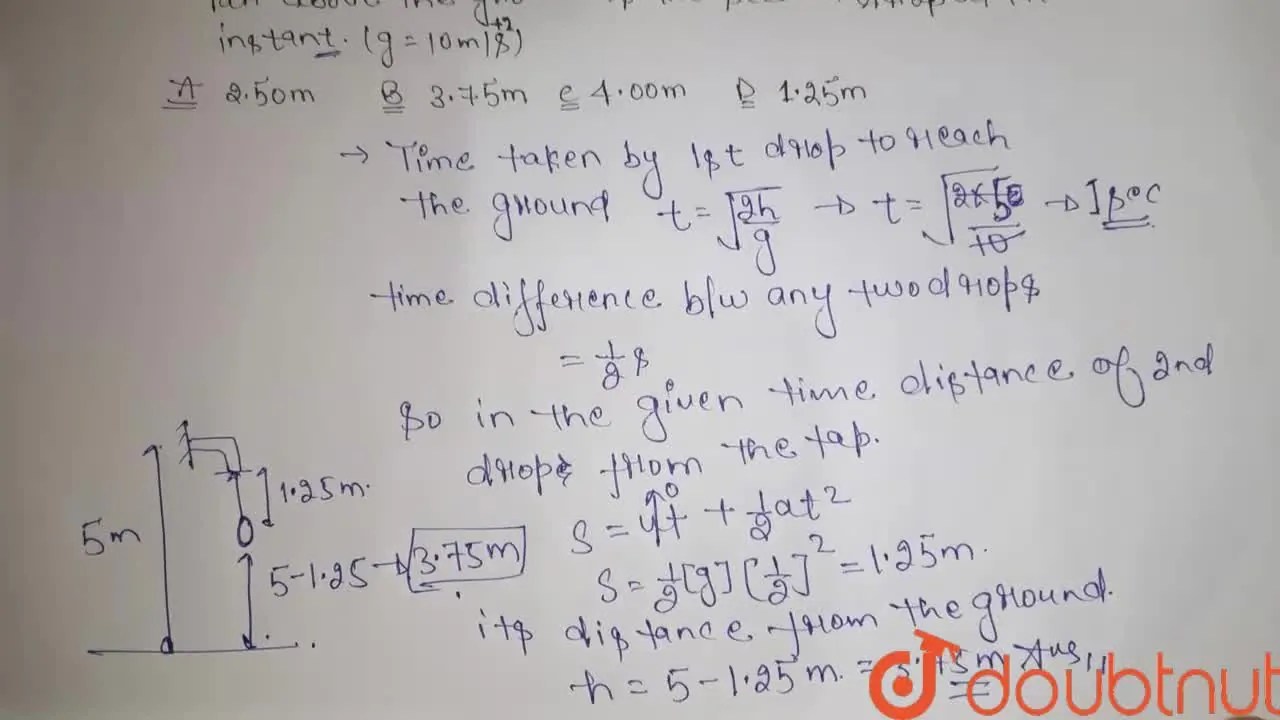 above the
instant. (g = 10m/s²)
A 2.50m B 3.75m C 4.00m D 1.25m
→ Time taken by 1st drop to reach
the ground t = √2h/g → t = √2×5/10 → 1 sec
time difference b/w any two drops
= 1/2 s
so in the given time distance of 2nd
drop from the tap.
S = ut⁰ + 1/2 at²
S = 1/2 [g] [1/2]² = 1.25m.
its distance from the ground.
h = 5 - 1.25m. = 3.75m Ans
5m
1.25m.
5-1.25 → 3.75m
doubtnut